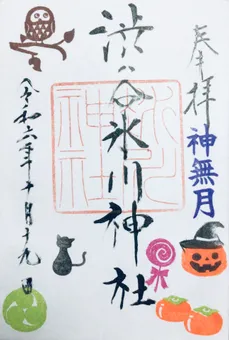 奉拝
神無月
渋谷氷川神社
令和六年十月十九日